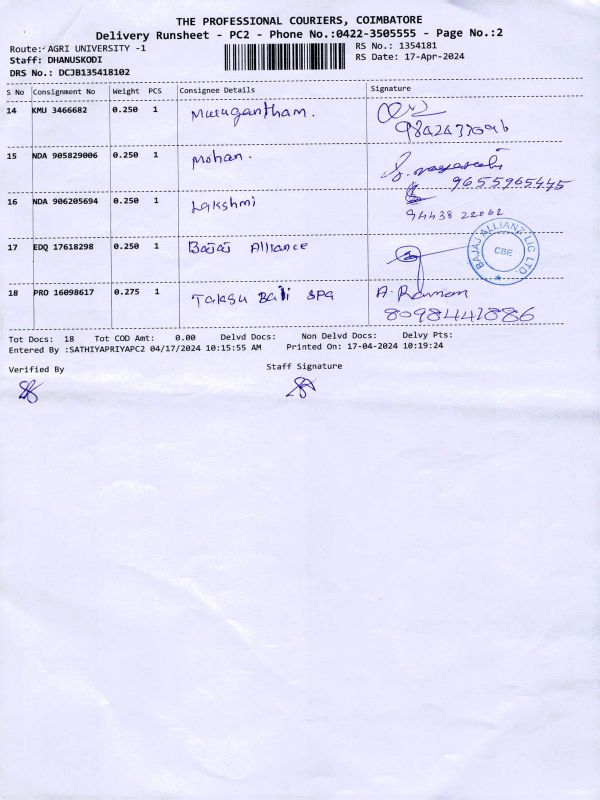 THE PROFESSIONAL COURIERS, COIMBATORE
Delivery Runsheet - PC2 - Phone No.:0422-3505555 - Page No.:2
Route: AGRI UNIVERSITY -1
RS No.: 1354181
Staff: DHANUSKODI
RS Date: 17-Apr-2024
DRS No.: DCJB135418102
S No Consignment No Weight PCS Consignee Details Signature
14 KMU 3466682 0.250 1 Murugantham.
15 NDA 905829006 0.250 1 Mohan.
9655965445
16 NDA 906205694 0.250 1 Lakshmi
94438 22062
17 EDQ 17618298 0.250 1 Bajaj Alliance
BAJAJ ALLIANZ LIC LTD. CBE
18 PRO 16098617 0.275 1 Taksu Bali SPA A. Raman
8098441886
Tot Docs: 18 Tot COD Amt: 0.00 Delvd Docs: Non Delvd Docs: Delvy Pts:
Entered By :SATHIYAPRIYAPC2 04/17/2024 10:15:55 AM Printed On: 17-04-2024 10:19:24
Verified By Staff Signature